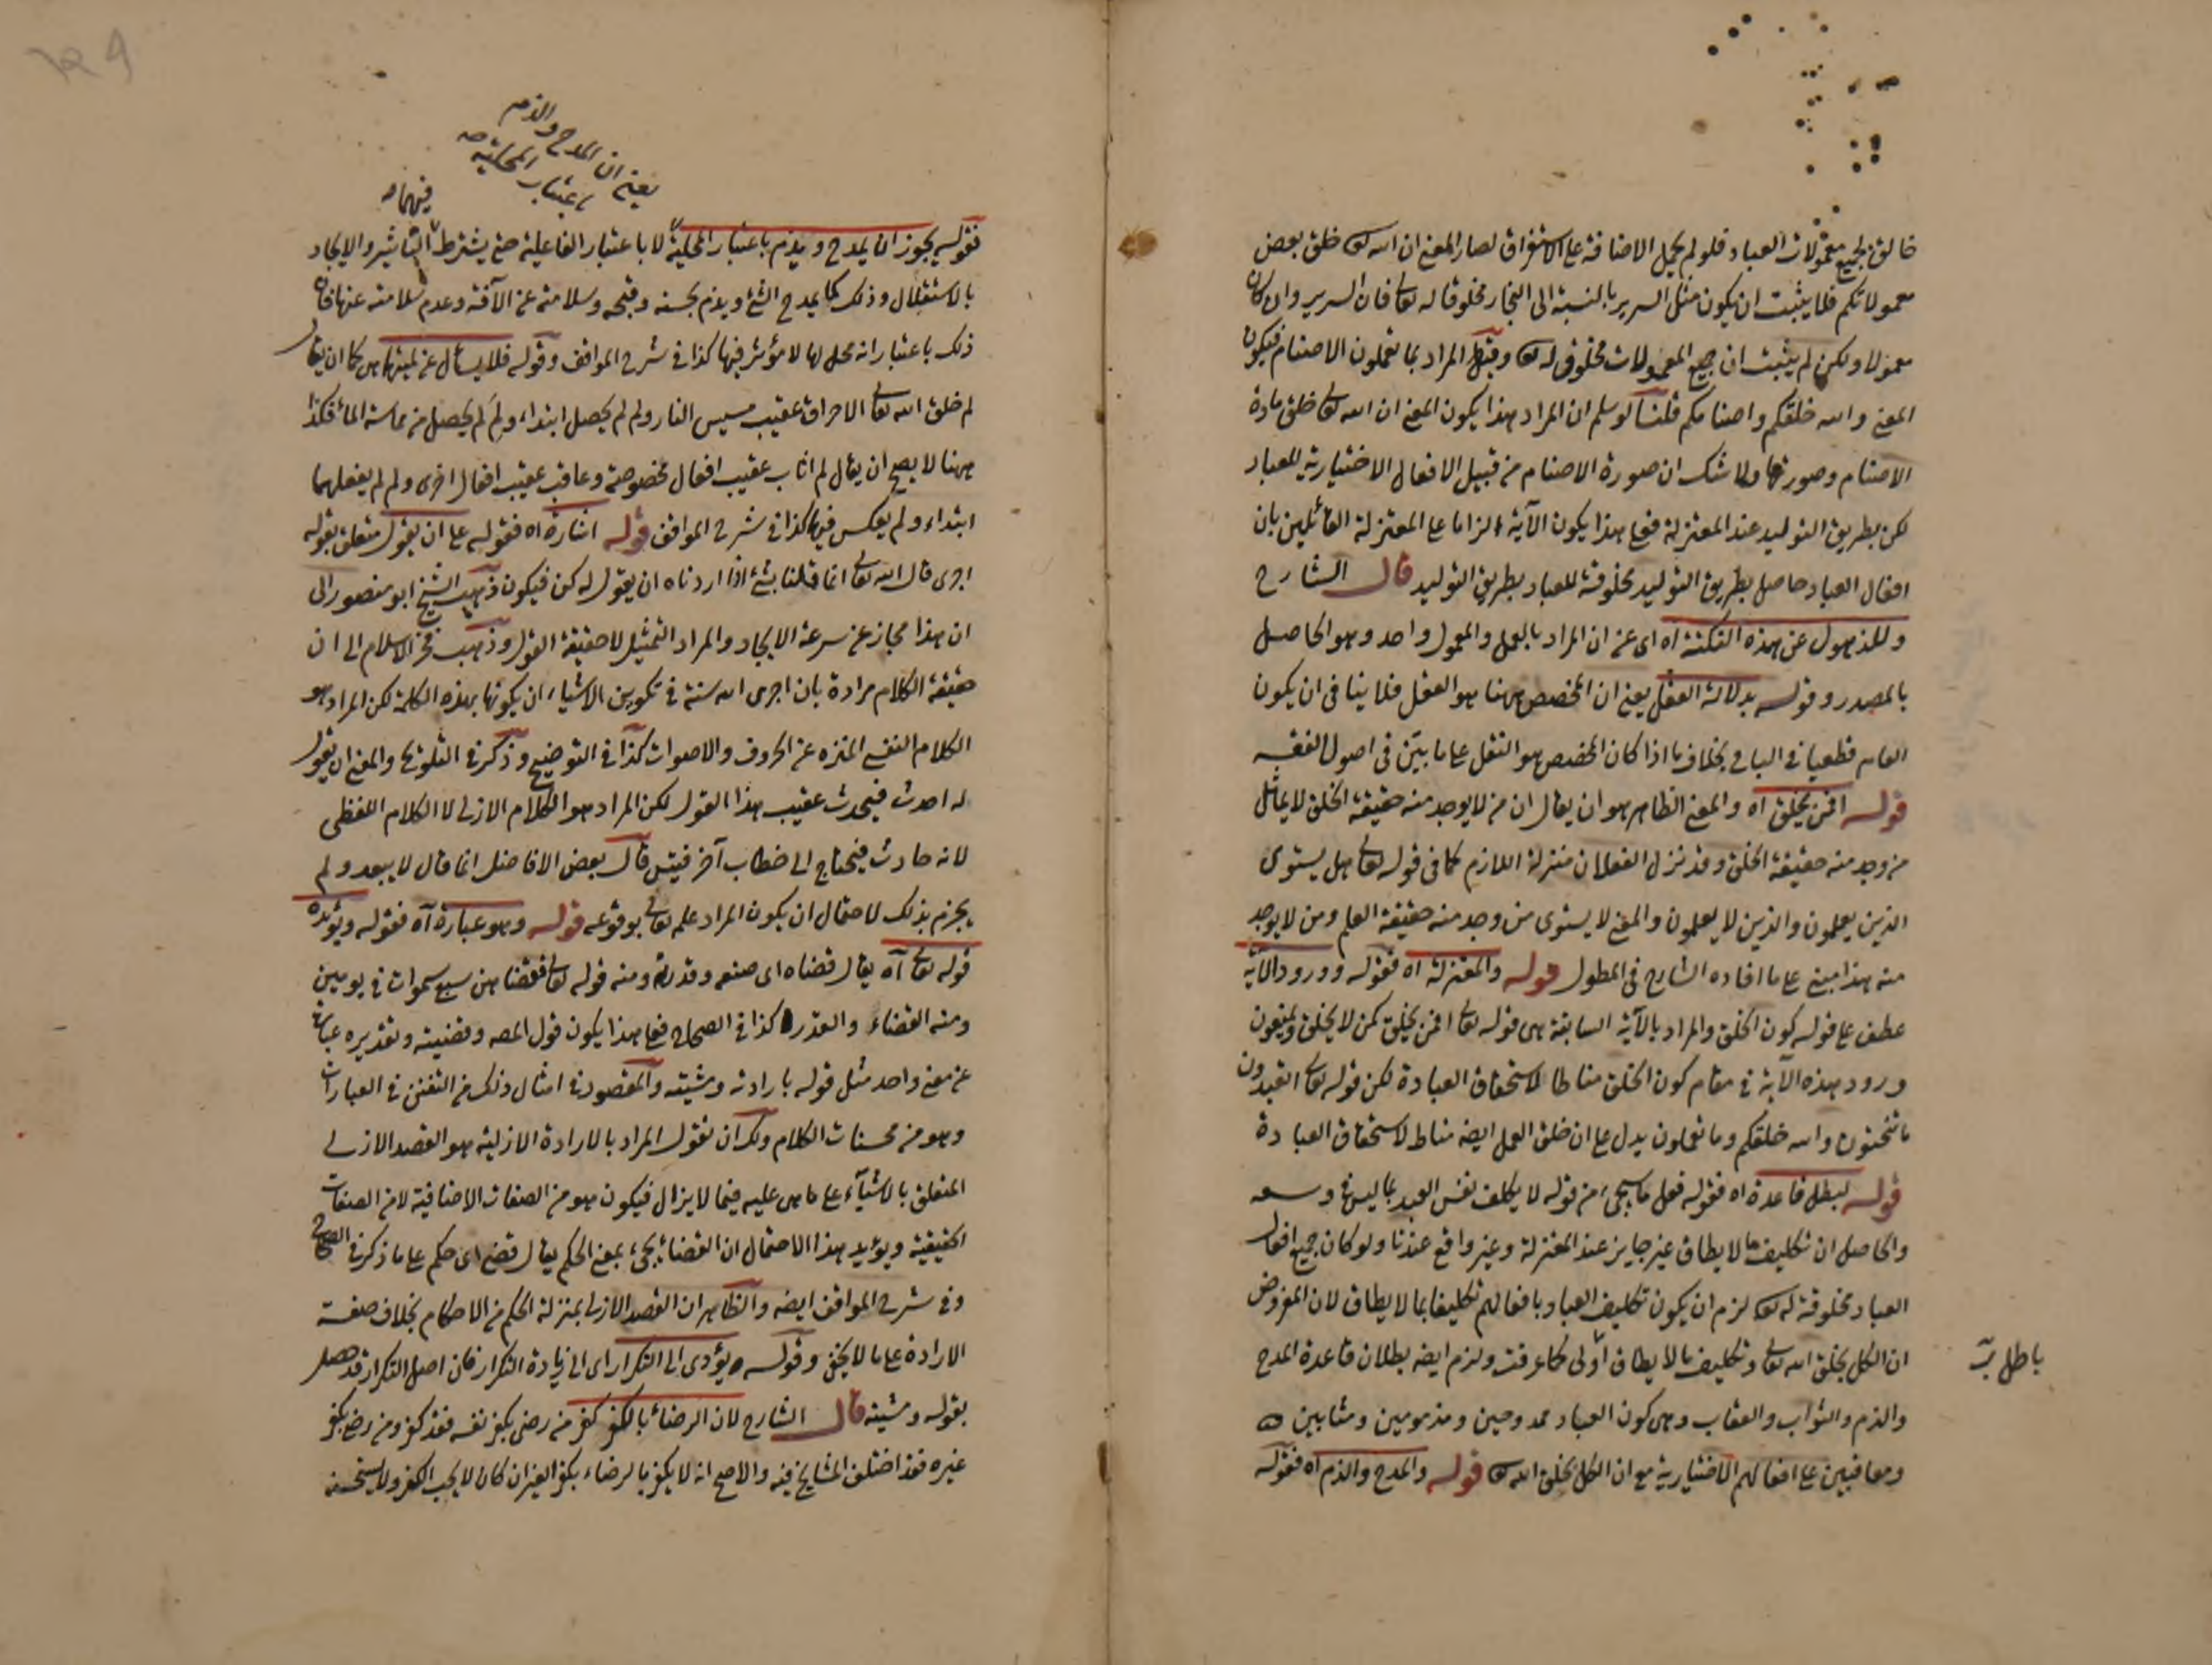 خالق لجميع معمولات العباد فلو لم يحمل الاضافة على الاستغراق لصار المعنى ان الله تعالى خلق بعض
معمولاتكم فلا يثبت ان يكون مثل السرير بالنسبة الى النجار مخلوقا له تعالى فان السرير وان كان
معمولا ولكن لم يثبت ان جميع المعمولات مخلوق له تعالى وقيل المراد بما تعملون الاصنام فيكون
المعنى والله خلقكم واصنامكم قلنا لو سلم ان المراد هذا يكون المعنى ان الله تعالى خلق مادة
الاصنام وصورتها ولا شك ان صورة الاصنام من قبيل الافعال الاختيارية للعباد
لكن بطريق التوليد عند المعتزلة فعلى هذا يكون الآية الزاما على المعتزلة القائلين بان
افعال العباد حاصل بطريق التوليد مخلوقة للعباد بطريق التوليد قال الشارح
وللذهول عن هذه النكتة اه اى عن ان المراد بالعمل والمعمول واحد وهو الحاصل
بالمصدر وقوله بدلالة العقل يعنى ان المخصص ههنا هو العقل فلا ينافى ان يكون
العام قطعيا فى الباقى بخلاف ما اذا كان المخصص هو النقل على ما بين فى اصول الفقه
قوله افمن يخلق اه والمعنى الظاهر هو ان يقال ان من لا يوجد منه حقيقة الخلق لا يماثل
من وجد منه حقيقة الخلق وقد نزل الفعلان منزلة اللازم كما فى قوله تعالى هل يستوى
الذين يعلمون والذين لا يعلمون والمعنى لا يستوى من وجد منه حقيقة العلم ومن لا يوجد
منه هذا مبنى على ما افاده الشارح فى المطول قوله والمعتزلة اه فقوله وورود الآية
عطف على قوله كون الخلق والمراد بالآية السابقة هى قوله تعالى افمن يخلق كمن لا يخلق ويمنعون
ورود هذه الآية فى مقام كون الخلق مناطا لاستحقاق العبادة لكن قوله تعالى اتعبدون
ما تنحتون والله خلقكم وما تعملون يدل على ان خلق العمل ايضه مناط لاستحقاق العبادة
قوله لبطل قاعدة اه فقوله فعل ما سيجئ من قوله لا يكلف نفس العبد بما ليس فى وسعه
والحاصل ان تكليف ما لا يطاق غير جايز عند المعتزلة وغير واقع عندنا ولو كان جميع افعال
العباد مخلوقة له تعالى لزم ان يكون تكليف العباد بافعالهم تكليفا بما لا يطاق لان المفروض
ان الكل بخلق الله تعالى وتكليف ما لا يطاق أولى كما عرفت ولزم ايضه بطلان قاعدة المدح
باطل
والذم والثواب والعقاب وهى كون العباد ممدوحين ومذمومين ومثابين
ومعاقبين على افعالهم الاختيارية مع ان الكل بخلق الله تعالى قوله والمدح والذم اه فقوله
يعنى ان المدح والذم
باعتبار المحلية
فيهما
فقوله يجوز ان يمدح ويذم باعتبار المحلية لا باعتبار الفاعلية حتى يشترط التأثير والايجاد
بالاستقلال وذلك كما يمدح الشئ ويذم بحسنه وقبحه وسلامته عن الآفة وعدم سلامته عنها فان
ذلك باعتبار انه محل لها لا مؤثر فيها كذا فى شرح المواقف وقوله فلا يسأل عن لميتها كما ان يقال
لم خلق الله تعالى الاحراق عقيب مسيس النار ولم لم يحصل ابتداء ولم لم يحصل من مماسة الماء فكذا
ههنا لا يصح ان يقال لم اثاب عقيب افعال مخصوصة وعاقب عقيب افعال اخرى ولم لم يفعلهما
ابتداء ولم يعكس فيها كذا فى شرح المواقف قوله اشارة اه فقوله على ان يقول متعلق بقوله
اجرى قال الله تعالى انما قولنا بشئ اذا اردناه ان يقول له كن فيكون ذهب الشيخ ابو منصور الى
ان هذا مجاز عن سرعة الايجاد والمراد التمثيل لا حقيقة القول وذهب فخر الاسلام الى ان
حقيقة الكلام مرادة بان اجرى الله سنة فى تكوين الاشياء ان يكونها بهذه الكلمة لكن المراد هو
الكلام النفسى المنزه عن الحروف والاصوات كذا فى التوضيح وذكر فى التلويح والمعنى ان يقول
له احدث فيحدث عقيب هذا القول لكن المراد هو الكلام الازلى لا الكلام اللفظى
لانه حادث فيحتاج الى خطاب آخر فيتس قال بعض الافاضل انما قال لا يبعد ولم
يجزم بذلك لاحتمال ان يكون المراد علمه تعالى بوقوعه قوله وهو عبارة آه فقوله ويؤيده
قوله تعالى آه يقال قضاه اى صنعه وقدره ومنه قوله تعالى فقضاهن سبع سموات فى يومين
ومنه القضاء والقدر كذا فى الصحاح فعلى هذا يكون قول المصه وقضيته وتقديره عبارة
عن معنى واحد مثل قوله بارادته ومشيته والمقصود فى امثال ذلك من التفنن فى العبارات
وهو من محسنات الكلام ولك ان تقول المراد بالارادة الازلية هو القصد الازلى
المتعلق بالاشياء على ما هى عليه فيما لا يزال فيكون هو من الصفات الاضافية لا من الصفات
الحقيقية ويؤيد هذا الاحتمال ان القضاء يجئ بمعنى الحكم يقال قضى اى حكم على ما ذكر فى الصحاح
وفى شرح المواقف ايضه والظاهر ان القصد الازلى بمنزلة الحكم من الاحكام بخلاف صفة
الارادة على ما لا يخفى وقوله يؤدى الى التكرار اى الى زيادة التكرار فان اصل التكرار قد حصل
بقوله ومشيته قال الشارح لان الرضاء بالكفر كفر من رضى بكفر نفسه فقد كفر ومن رضى بكفر
غيره فقد اختلف المشايخ فيه والاصح انه لا يكفر بالرضاء بكفر الغير ان كان لا يحب الكفر ولا يستحسنه